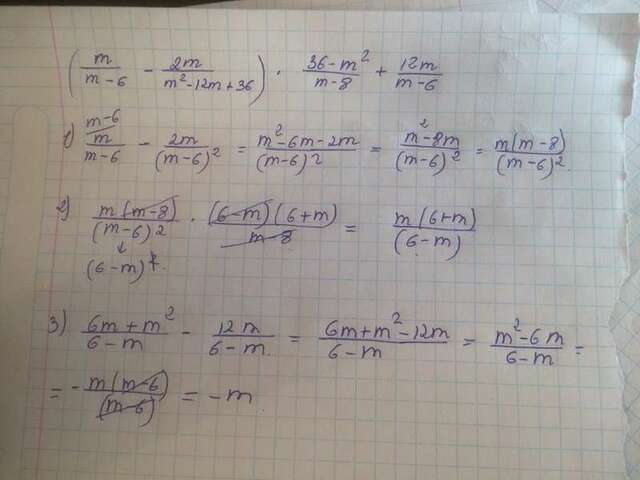 (m/(m-6) - 2m/(m²-12m+36)) · (36-m²)/(m-8) + 12m/(m-6)
1) m-6/ m/(m-6) - 2m/(m-6)² = (m²-6m-2m)/(m-6)² = (m²-8m)/(m-6)² = m(m-8)/(m-6)²
2) m(m-8)/(m-6)² · (6-m)(6+m)/(m-8) = m(6+m)/(6-m)
↓
(6-m)²
3) (6m+m²)/(6-m) - 12m/(6-m) = (6m+m²-12m)/(6-m) = (m²-6m)/(6-m) =
= -m(m-6)/(m-6) = -m